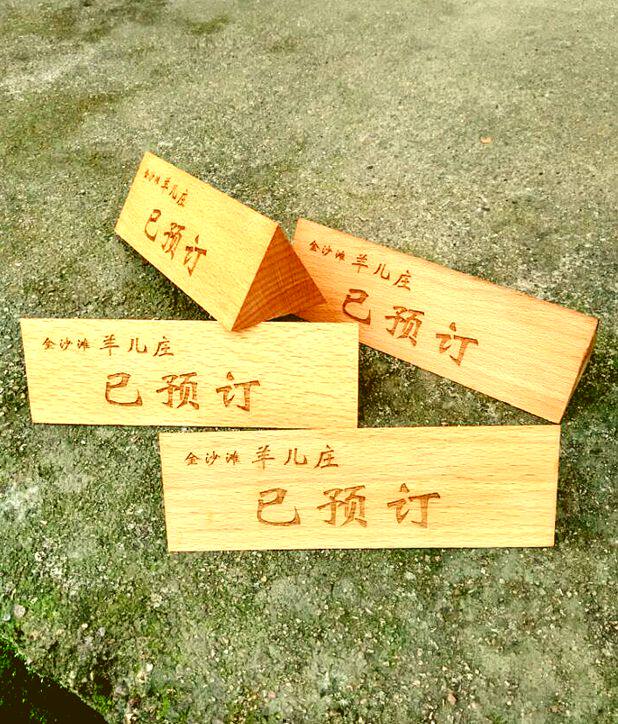 金沙滩 羊儿庄
已预订
金沙滩 羊儿庄
已预订
金沙滩 羊儿庄
已预订
金沙滩 羊儿庄
已预订